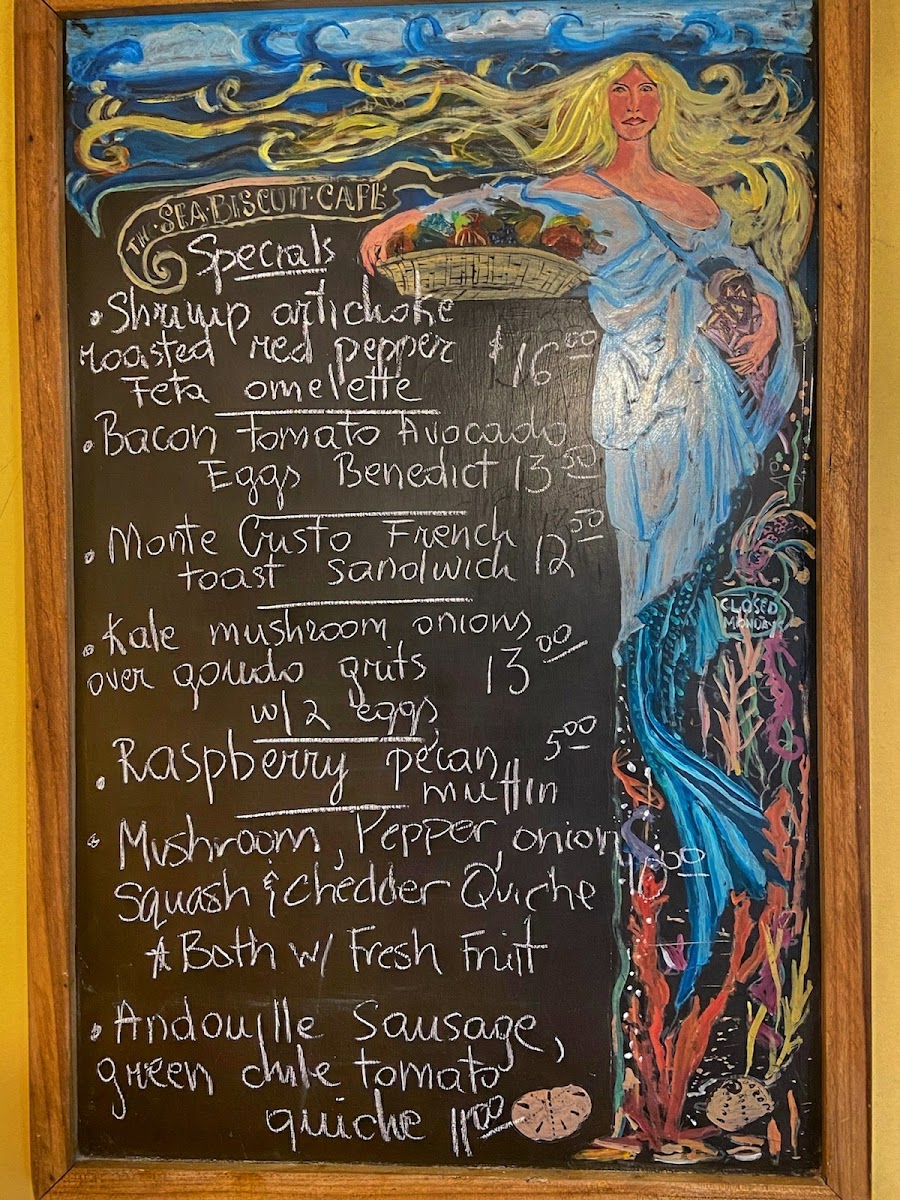 THE SEA·BISCUIT·CAFE
Specials
• Shrimp artichoke
roasted red pepper $16.00
Feta omelette
• Bacon Tomato Avocado
Eggs Benedict 13.50
• Monte Cristo French
toast sandwich 12.50
• Kale mushroom onions
over gouda grits 13.00
w/ 2 eggs
• Raspberry pecan 5.00
muffin
• Mushroom, Pepper, onion
squash & chedder Quiche
* Both w/ Fresh Fruit
• Andouille Sausage,
green chile tomato
quiche 11.00
CLOSED
MONDAYS